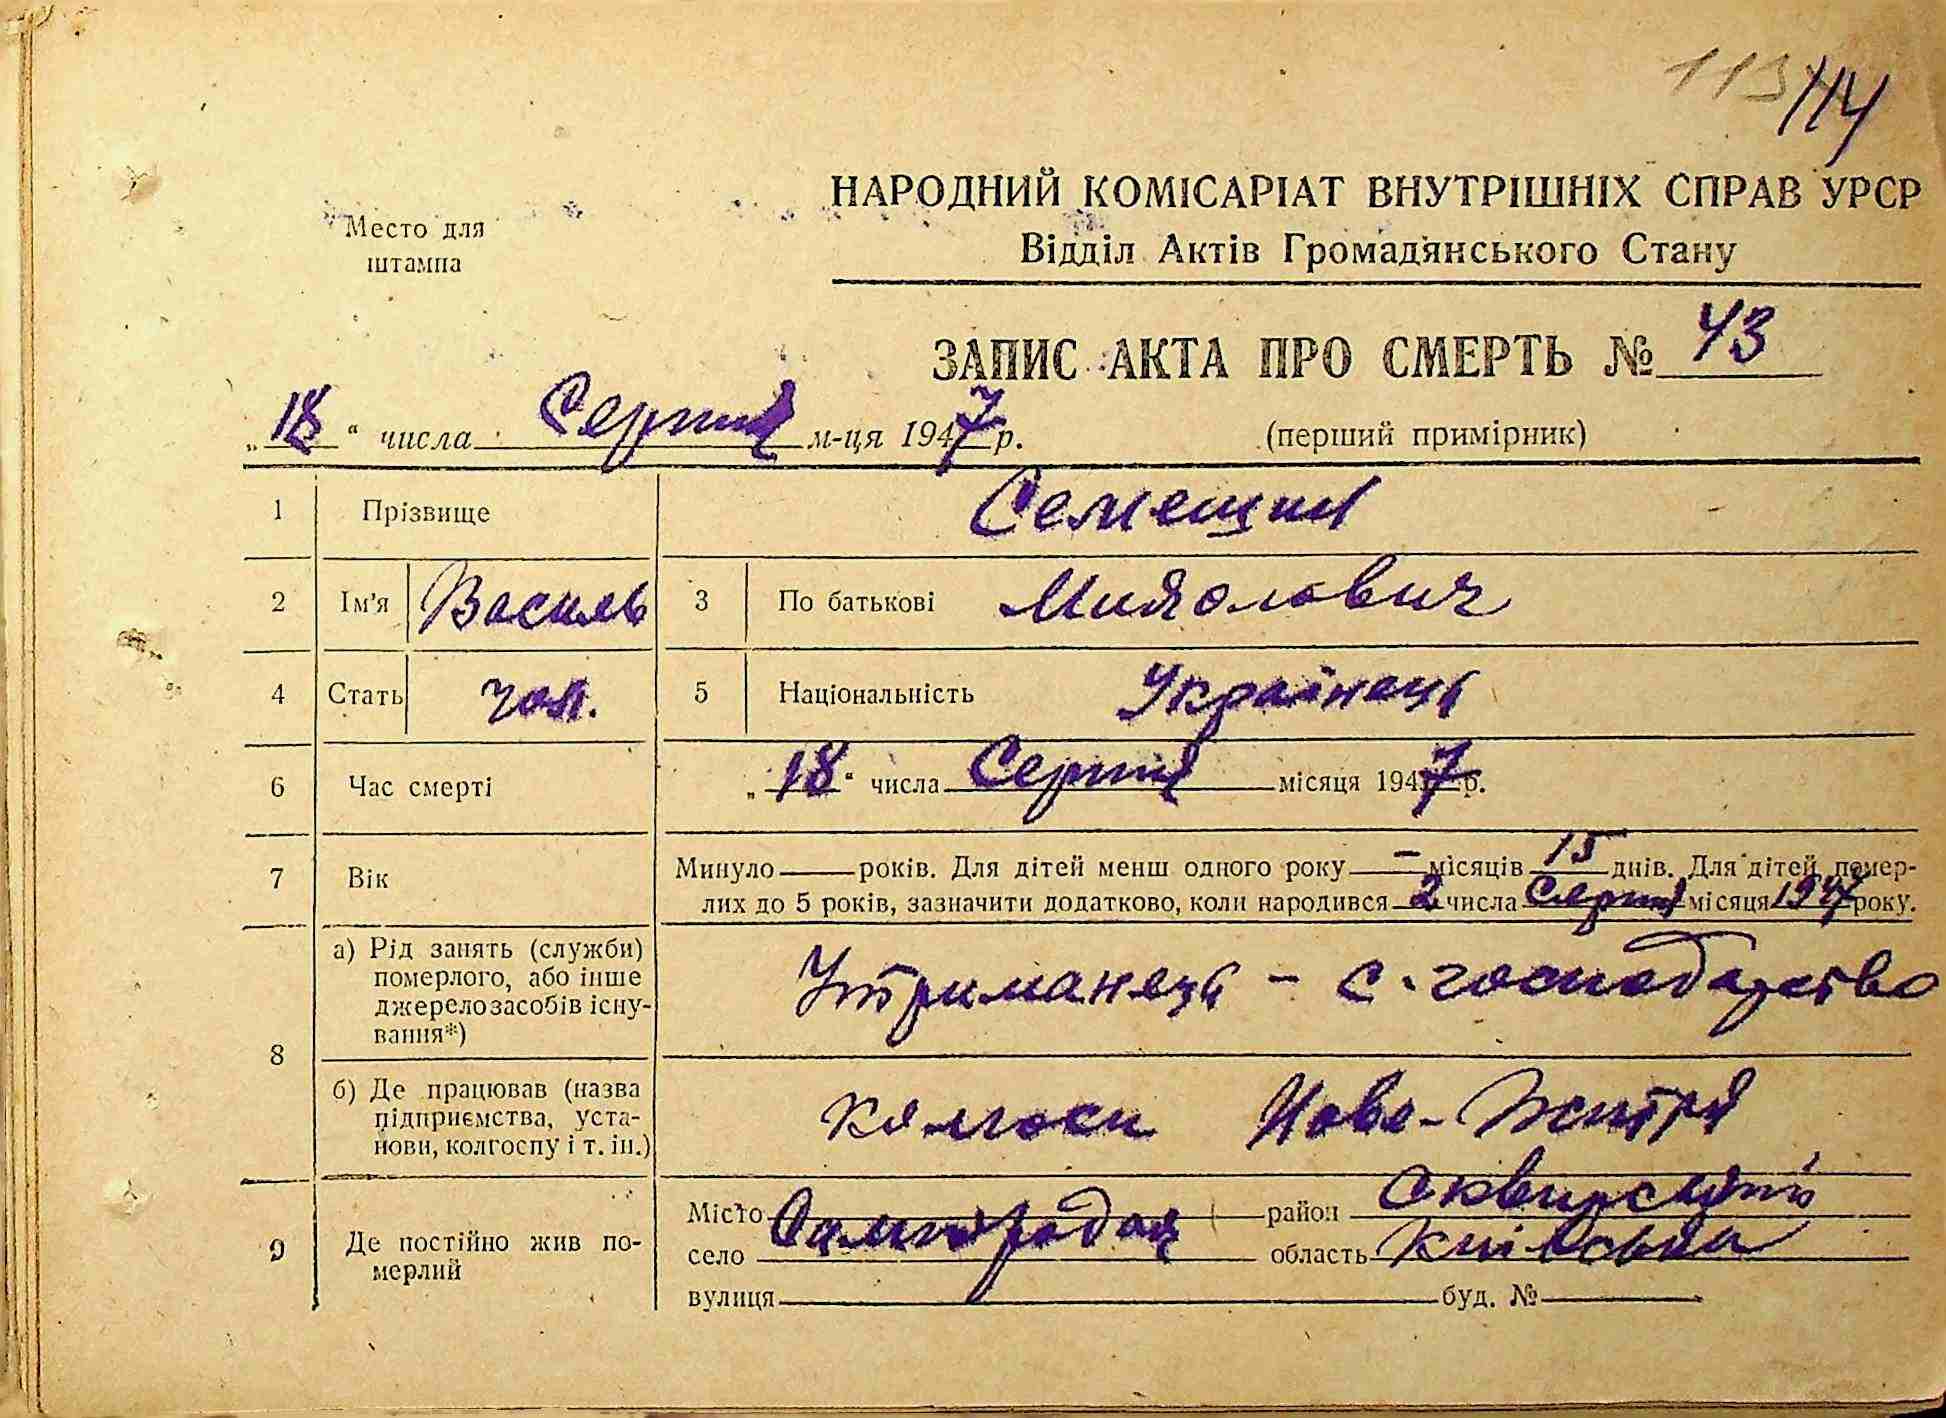 113 114
НАРОДНИЙ КОМІСАРІАТ ВНУТРІШНІХ СПРАВ УРСР
Место для штампа
Відділ Актів Громадянського Стану
ЗАПИС АКТА ПРО СМЕРТЬ № 43
„18“ числа Серпня м-ця 1947 р.
(перший примірник)
1 Прізвище Семещин
2 Ім'я Василь 3 По батькові Миколович
4 Стать чол. 5 Національність Українець
6 Час смерті „18“ числа Серпня місяця 1947 р.
7 Вік Минуло — років. Для дітей менш одного року — місяців 15 днів. Для дітей помер-
лих до 5 років, зазначити додатково, коли народився 2 числа Серпня місяця 1947 року.
8 а) Рід занять (служби) померлого, або інше джерело засобів існування*) Утриманець - с. господарство
б) Де працював (назва підприємства, установи, колгоспу і т. ін.) Колгосп Нове-Життя
9 Де постійно жив померлий
Місто Самгородок район Сквирський
село область Київська
вулиця буд. №